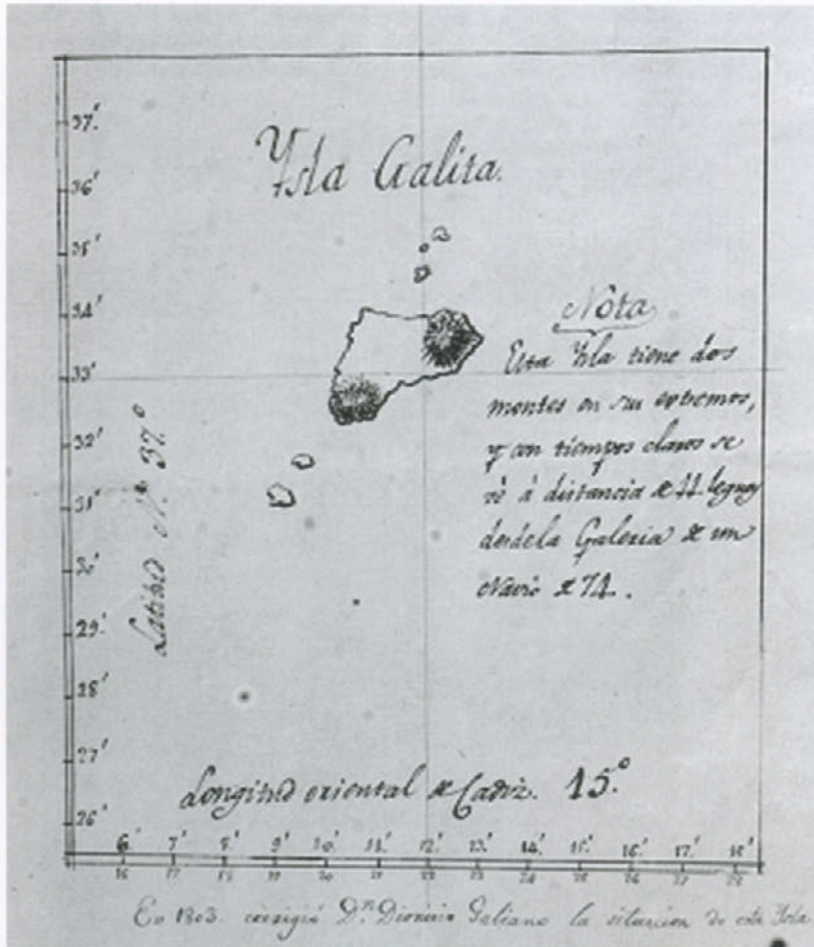 37.'
Ysla Galita.
36'
35'
34'
33'
32'
31'
30'
29'
28'
27'
26'
Nota
Esta Ysla tiene dos
montes en sus extremos,
y con tiempos claros se
vé á distancia de 11 leguas
desdela Galeria de un
Navio de 74.
Latitud N. 37.°
Longitud oriental de Cadiz. 15.°
6.' 7.' 8.' 9.' 10.' 11.' 12.' 13.' 14.' 15.' 16.' 17.' 18.'
16 17 18 19 20 21 22 23 24 25 26 27 28
En 1803. corrigió Dn. Dionisio Galiano la situacion de esta Ysla